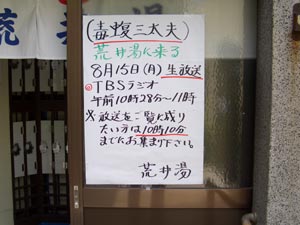 荒井湯
(毒蝮三太夫)
荒井湯に来る
8月15日(月)生放送
◎TBSラジオ
午前10時28分〜11時
※放送をご覧に成り
たい方は10時10分
までにお集り下さい。
荒井湯